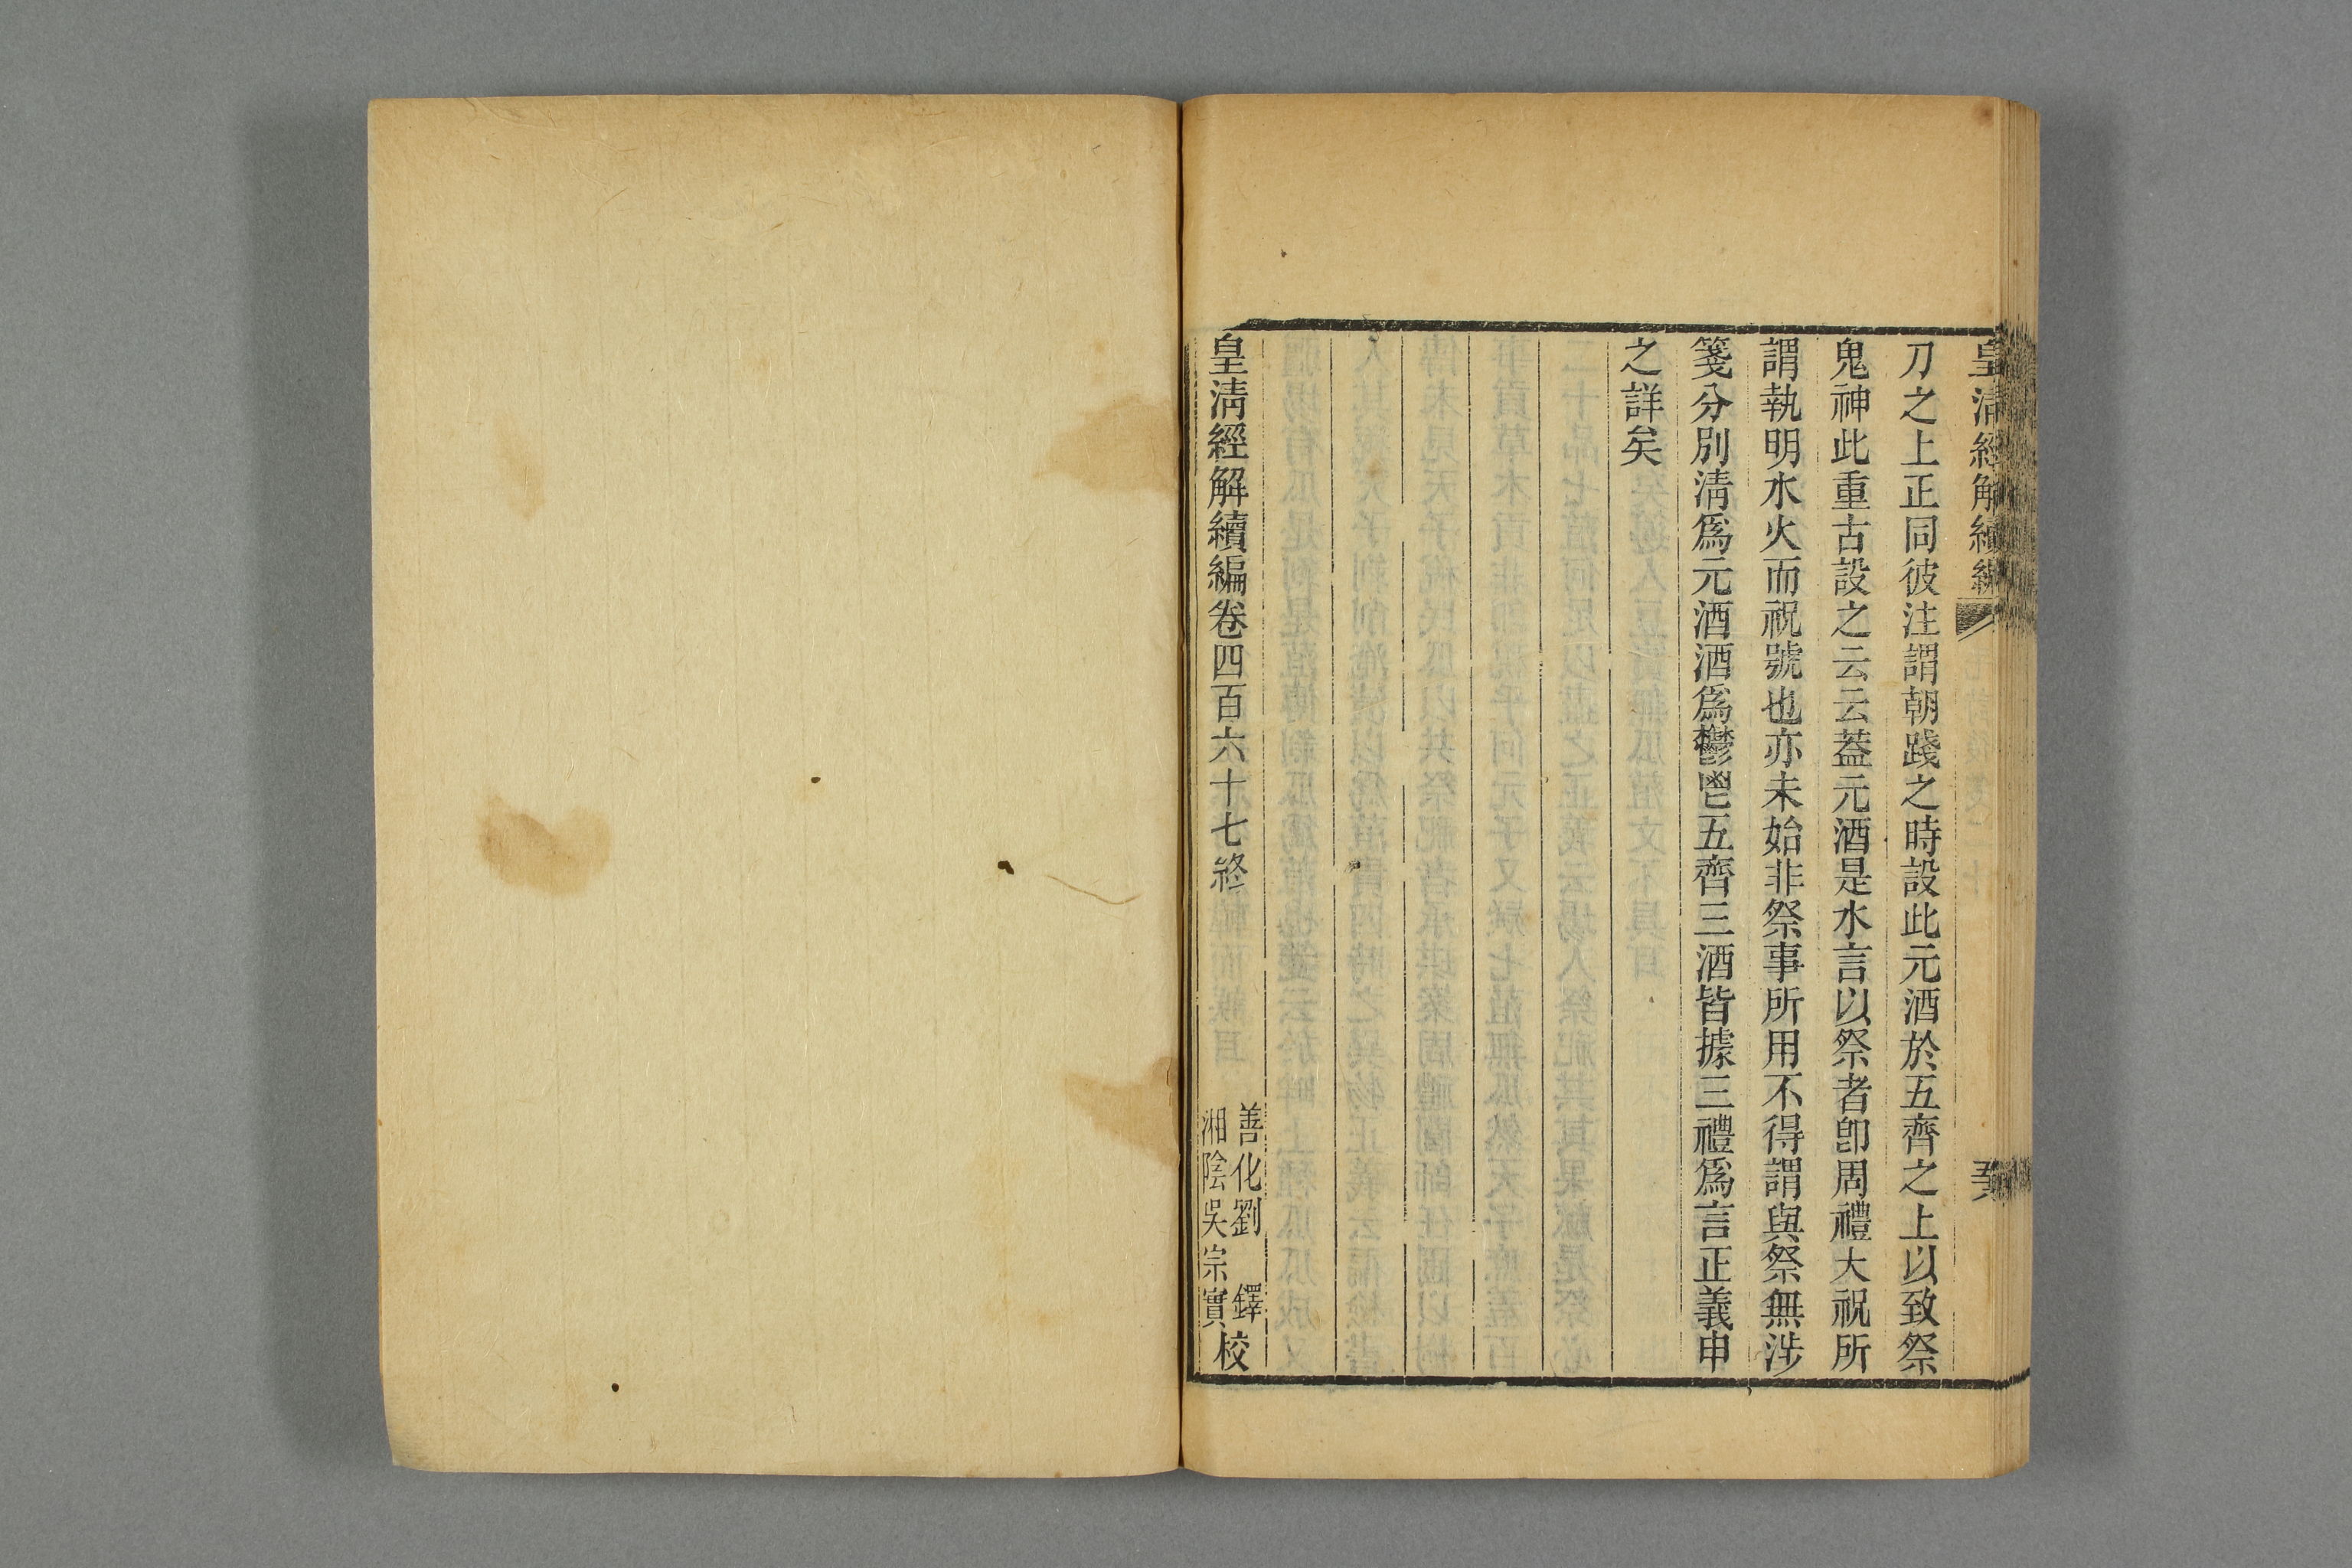 皇清經解續編
刀之上正同彼注謂朝踐之時設此元酒於五齊之上以致祭
鬼神此重古設之云云葢元酒是水言以祭者卽周禮大祝所
謂執明水火而祝號也亦未始非祭事所用不得謂與祭無涉
箋分別淸爲元酒酒爲鬱鬯五齊三酒皆據三禮爲言正義申
之詳矣
皇淸經解續編卷四百六十七終
善化劉鐸
湘陰吳宗實
校